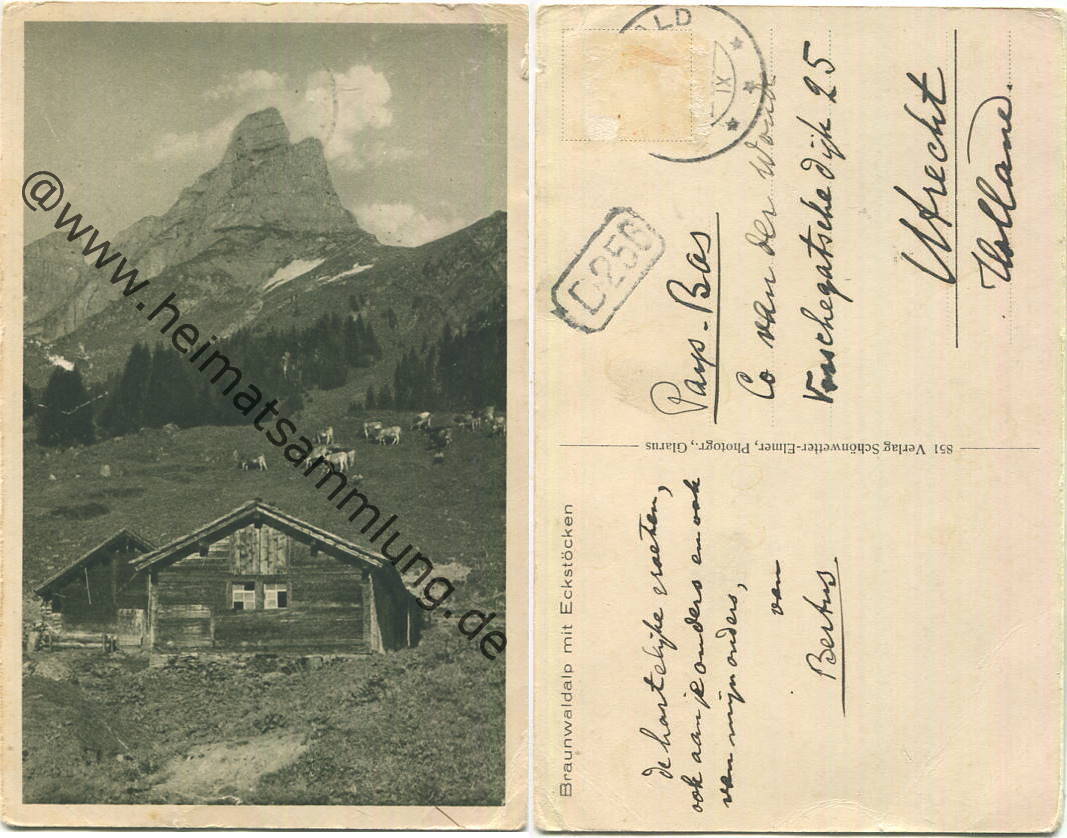 @www.heimatsammlung.de
Braunwaldalp mit Eckstöcken
de hartelijke groeten,
ook aan je ouders en ook
van mijn ouders,
van
Bertus
851 Verlag Schönwetter-Elmer, Photogr., Glarus
ALD
IX
D256
Pays-Bas
Co van der Woude
Vosschegatschedijk 25
Utrecht
Holland.